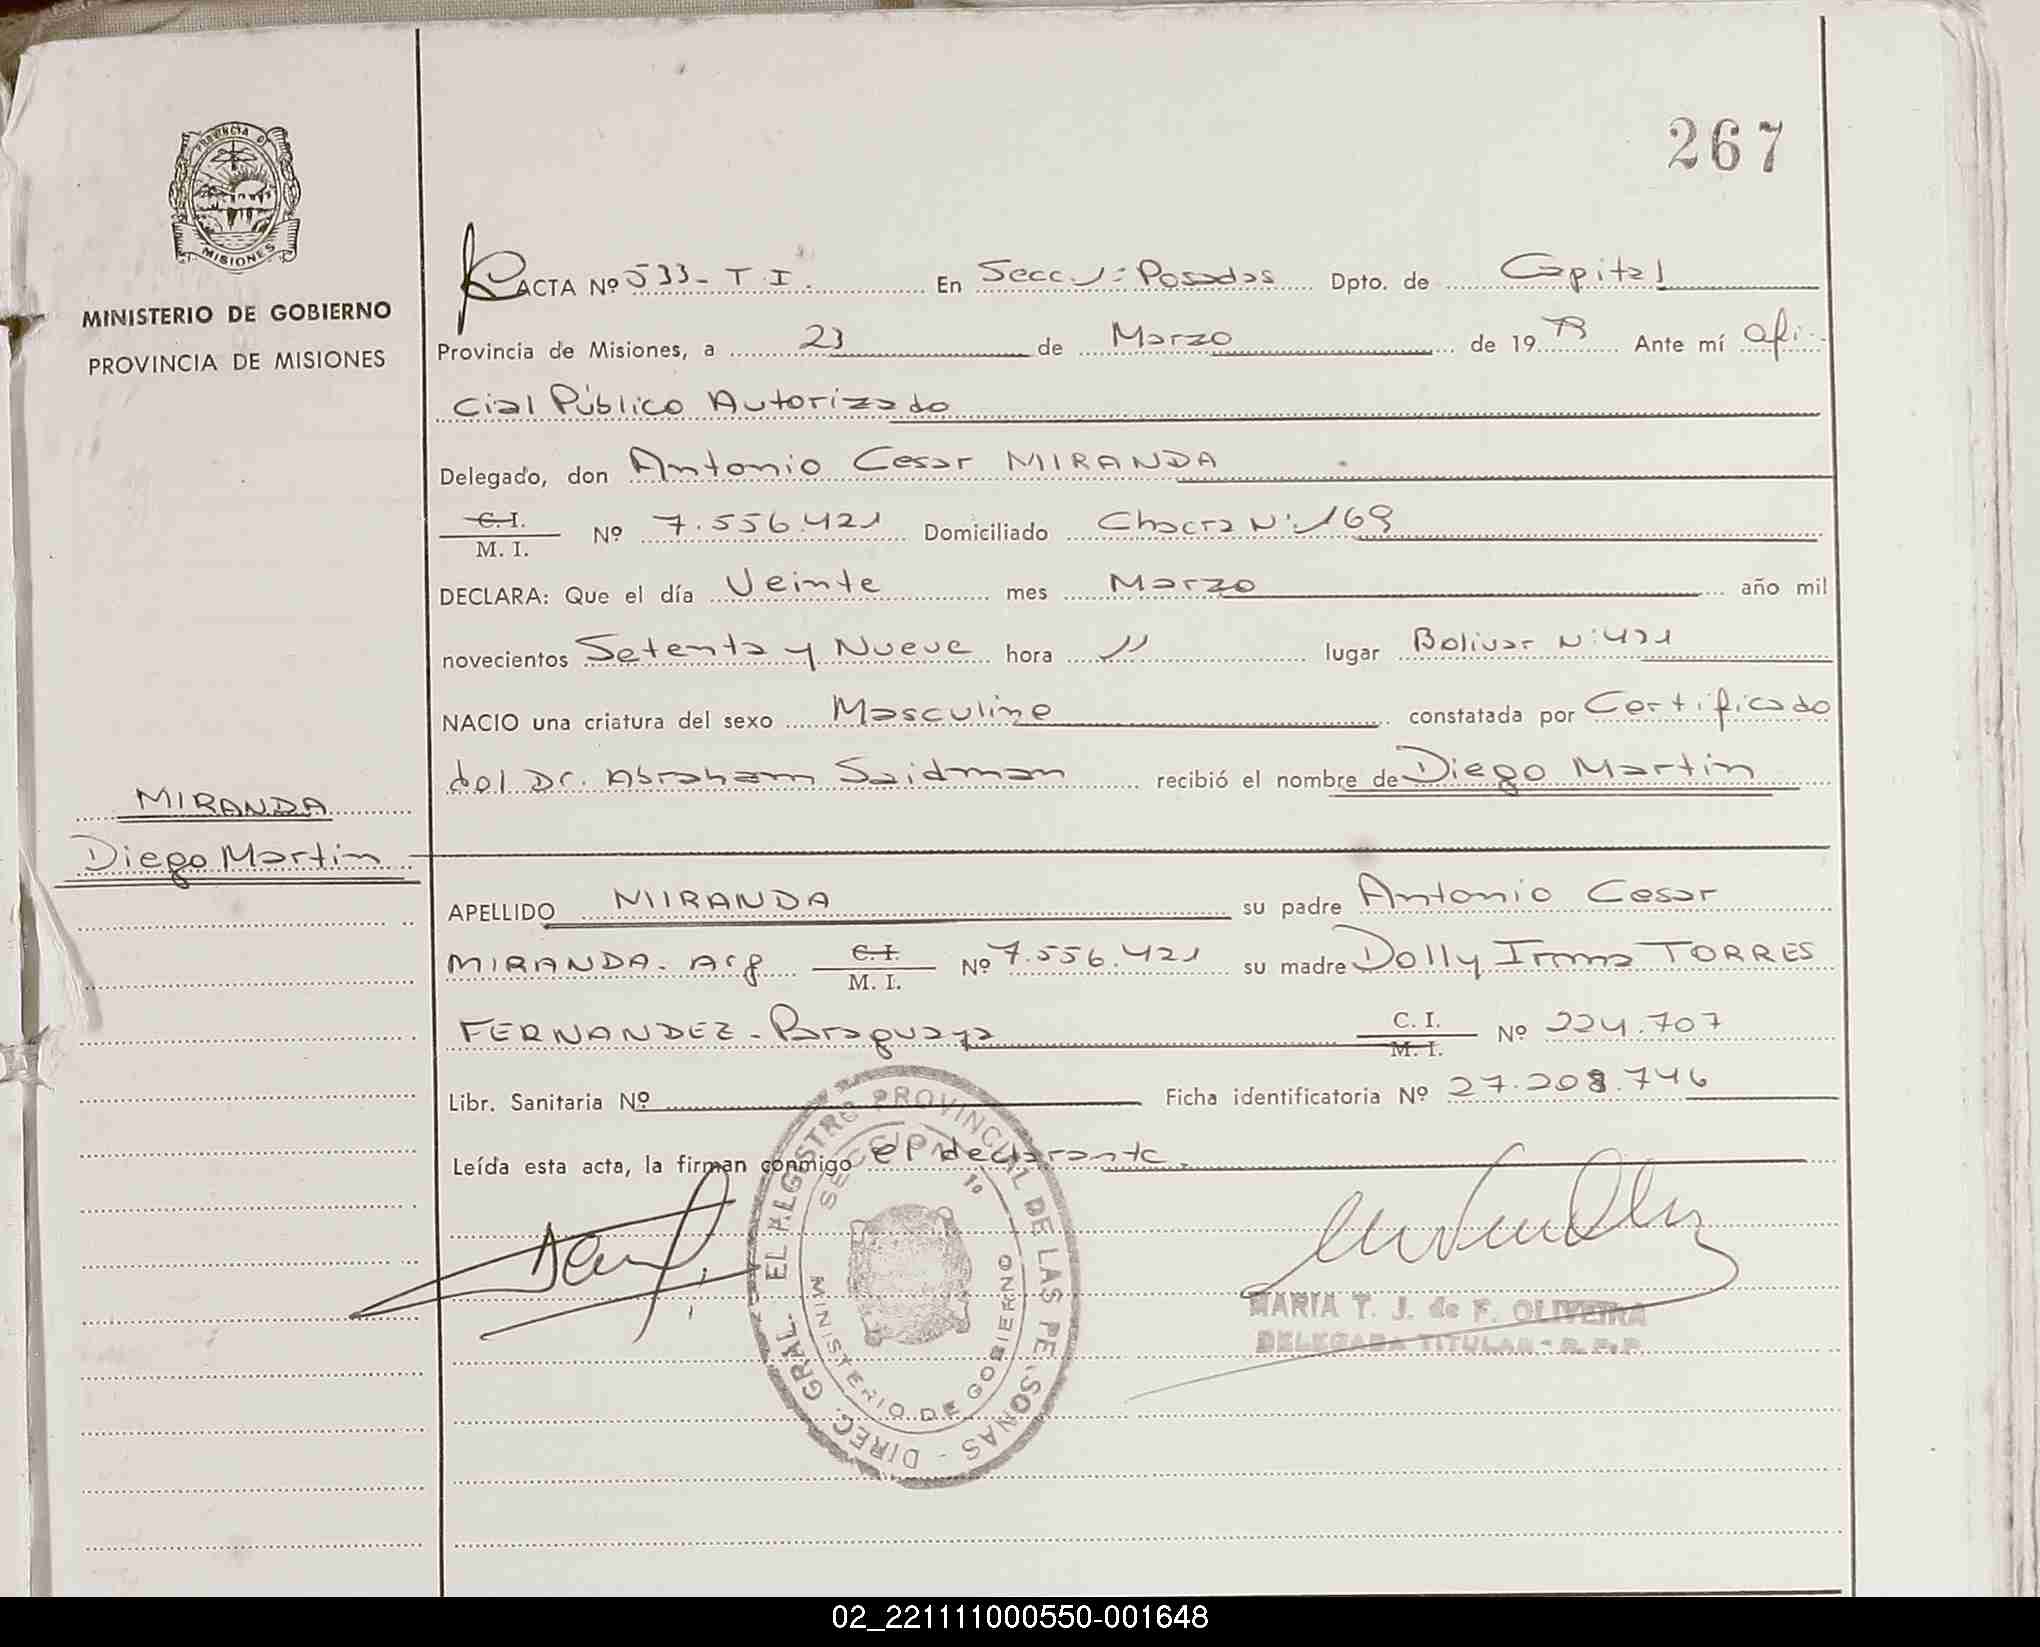 267
PROVINCIA D
MISIONES
MINISTERIO DE GOBIERNO
PROVINCIA DE MISIONES
ACTA Nº 533- T.I. En Secc. 1: Posadas Dpto. de Capital
Provincia de Misiones, a 23 de Marzo de 1979 Ante mí ofi-
cial Público Autorizado
Delegado, don Antonio Cesar MIRANDA
C. I.
M. I. Nº 7.556.421 Domiciliado Chacra Nº:169
DECLARA: Que el día Veinte mes Marzo año mil
novecientos Setenta y Nueve hora 11 lugar Bolivar Nº:421
NACIO una criatura del sexo Masculino constatada por Certificado
del Dr. Abraham Saidman recibió el nombre de Diego Martin
MIRANDA
Diego Martin
APELLIDO MIRANDA su padre Antonio Cesar
MIRANDA. Arg C. I. M. I. Nº 7.556.421 su madre Dolly Irma TORRES
FERNANDEZ - Paraguaya C. I. M. I. Nº 224.707
Libr. Sanitaria Nº Ficha identificatoria Nº 27.208.746
Leída esta acta, la firman conmigo el declarante.
DIREC. GRAL. EL REGISTRO PROVINCIAL DE LAS PE SONAS -
MINISTERIO DE GOBIERNO
MARIA T. J. de F. OLIVEIRA
DELEGADA TITULAR - R.P.P.
02_221111000550-001648